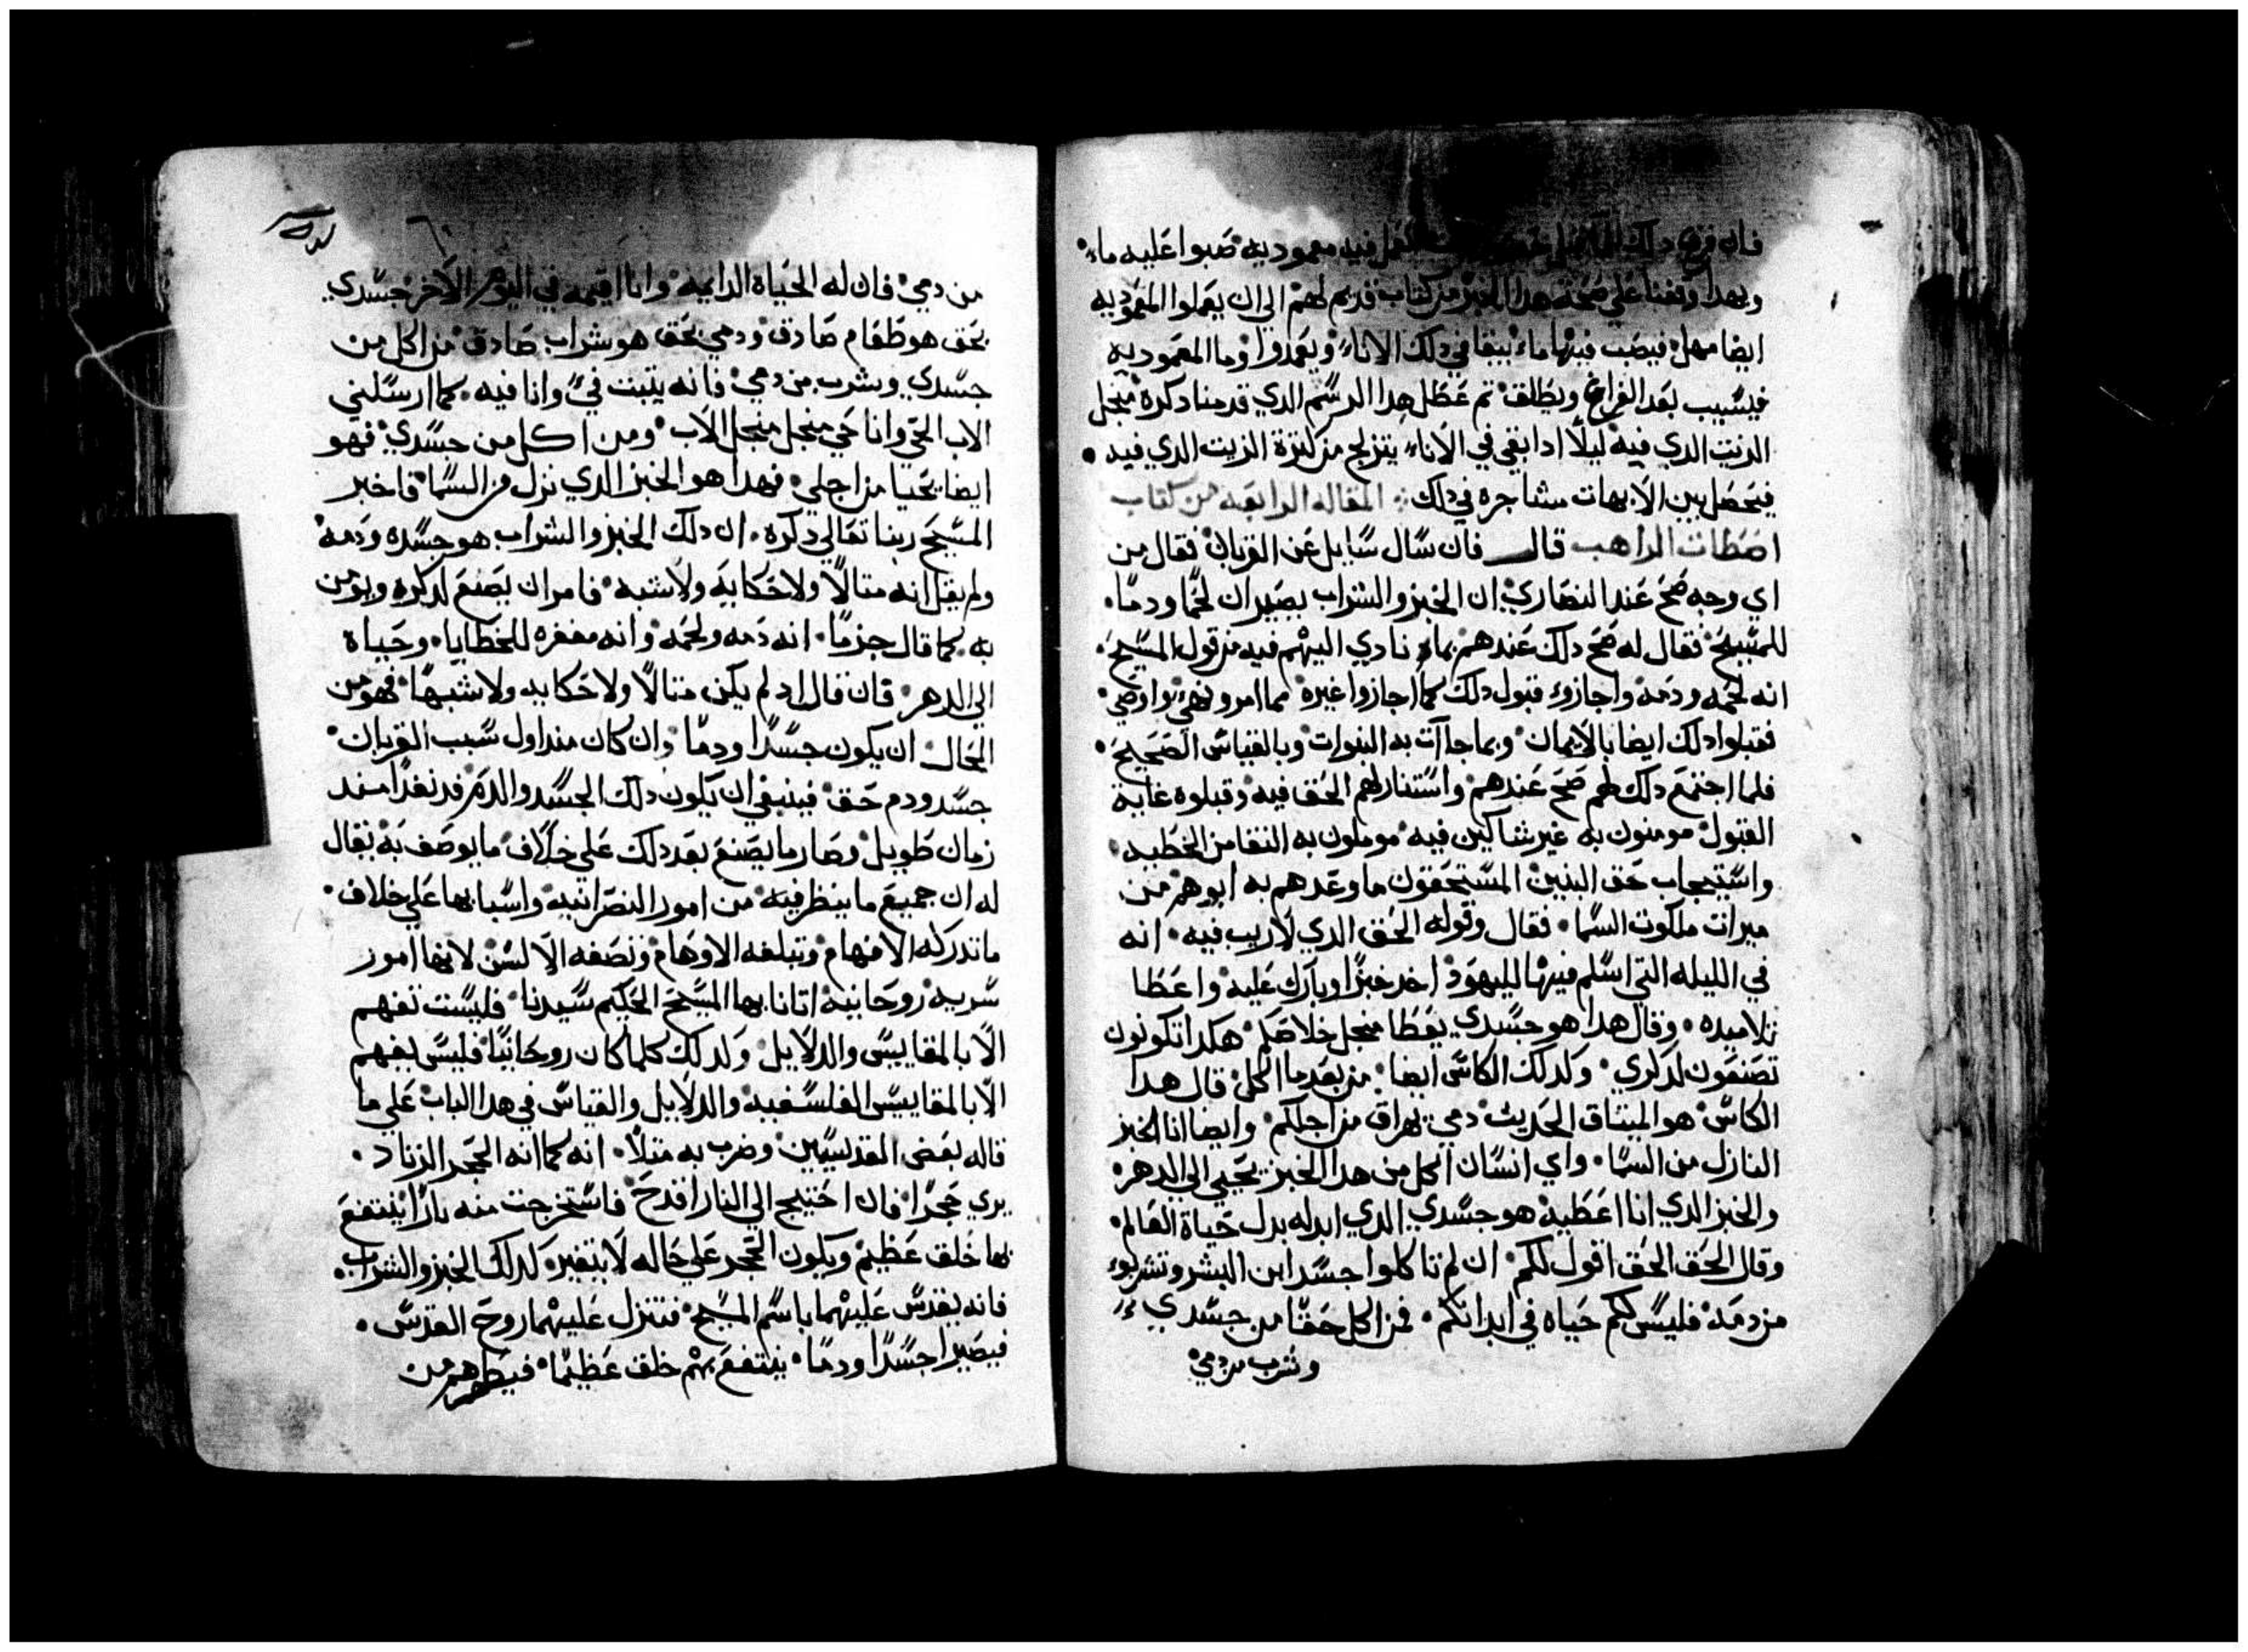 فان فرغ دلك معموديه صبوا عليه ماء
وبهدا وقفنا علي صحة هدا الخبز من كتاب قديم لهم الي ان يعملوا المعموديه
ايضا مهل فيصب فيها ماء يبقا في دلك الاناء ويعمدوا وما المعموديه
فيسيب بعد الفراغ ويطلق تم عطل هدا الرسم الدي قدمنا دكره منجل
الزيت الدي فيه ليلا ادا بقي في الاناء يتزلج من كترة الزيت الدي فيه
فيحصل بين الابهات مشاجره في دلك المقاله الرابعه من كتاب
اصطات الراهب قال فان سال سايل عن القربان فقال من
اي وجه صح عند النصاري ان الخبز والشراب يصيران لحما ودما
للمسيح فقال له صح دلك عندهم بما نادي اليهم فيه من قول المسيح
انه لحمه ودمه واجازوء قبول دلك كما اجازوا غيره مما امر ونهي واوصي
فقبلوا دلك ايضا بالايمان وبما جاات به النبوات وبالقياس الصحيح
فلما اجتمع دلك لهم صح عندهم واستنار لهم الحق فيه وقبلوه غاية
القبول مومنون به غير شاكين فيه موملون به النقا من الخطيه
واستيجاب حق البنين المستحقون ما وعدهم به ابوهم من
ميرات ملكوت السما فقال وقوله الحق الدي لاريب فيه انه
في الليله التي اسلم فيها لليهود اخد خبزا وبارك عليه واعطا
تلاميده وقال هدا هو جسدي يعطا منجل خلاصكم هكدا تكونون
تصنعون لدكري وكدلك الكاس ايضا من بعد ما اكل قال هدا
الكاس هو الميتاق الحديث دمي يهراق من اجلكم وايضا انا الخبز
النازل من السما واي انسان اكل من هدا الخبز يحيي الي الدهر
والخبز الدي انا اعطيه هو جسدي الدي ابدله بدل حياة العالم
وقال الحق الحق اقول لكم ان لم تاكلوا جسد ابن البشر وتشربوء
من دمه فليس لكم حياه في ابدانكم فمن اكل حقا من جسدي
وشرب من دمي
من دمي فان له الحياة الدايمه وانا اقيمه في اليوم الاخر جسدي
بحق هو طعام صادق ودمي بحق هو شراب صادق من اكل من
جسدي وشرب من دمي فانه يتبت في وانا فيه كما ارسلني
الاب الحي وانا حي منجل منجل الاب ومن اكل من جسدي فهو
ايضا يحيا من اجلي فهدا هو الخبز الدي نزل من السما فاخبر
المسيح ربنا تعالي دكره ان دلك الخبز والشراب هو جسده ودمه
ولم يقل انه متالا ولا حكايه ولا شبه فامر ان يصنع لدكره ويومن
به كما قال جزما انه دمه ولحمه وانه مغفره للخطايا وحياة
الي الدهر فان قال اد لم يكن متالا ولا حكايه ولا شبها فهو من
المحال ان يكون جسدا ودما وان كان مند اول سبب القربان
جسد ودم حق فينبغي ان يكون دلك الجسد والدم قد نفدا مند
زمان طويل وصار ما يصنع بعد دلك علي خلاف ما يوصف به نقال
له ان جميع ما ينظر فيه من امور النصرانيه واسبابها علي خلاف
ما تدركه الافهام وتبلغه الاوهام وتصفه الالسن لانها امور
سريه روحانيه اتانا بها المسيح الحكيم سيدنا فليست تفهم
الا بالمقاييس والدلايل وكدلك كلما كان روحانيا فليس يفهم
الا بالمقاييس الفلسفيه والدلايل والقياس في هدا الباب علي ما
قاله بعض القديسين وضرب به متلا انه كما انه الحجر الزناد
يري حجرا فان احتيج الي النار اقدح فاستخرجت منه نارا ينتفع
بها خلق عظيم ويكون الحجر علي حاله لا يتغير كدلك الخبز والشراب
فانه يقدس عليهما باسم المسيح فتنزل عليهما روح القدس
فيصيرا جسدا ودما ينتفع بهم خلق عظيما فيطهرهم من